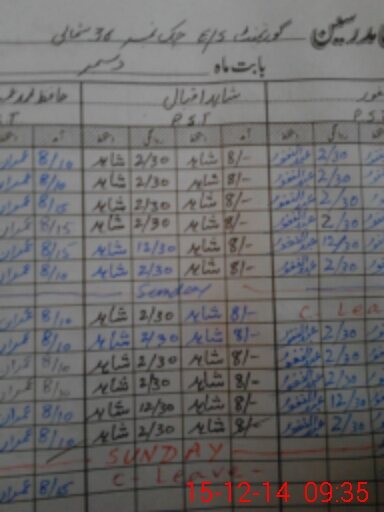 مدرسین گورنمنٹ E/S چک نمبر 36 شمالی
بابت ماہ دسمبر
شاہد اقبال
PST
8/10 شاہد 2/30 شاہد 8/- عبدالغفور 2/30
8/10 شاہد 2/30 شاہد 8/- عبدالغفور 2/30
8/15 شاہد 2/30 شاہد 8/- عبدالغفور 2/30
8/15 شاہد 2/30 شاہد 8/- عبدالغفور 2/30
8/15 شاہد 12/30 شاہد 8/- عبدالغفور 12/30
8/10 شاہد 2/30 شاہد 8/- عبدالغفور 2/30
Sunday
8/10 شاہد 2/30 شاہد 8/- C. Lea
8/10 شاہد 2/30 شاہد 8/- عبدالغفور 2/30
8/10 شاہد 2/30 شاہد 8/- عبدالغفور 2/30
8/10 شاہد 2/30 شاہد 8/- عبدالغفور 2/30
8/10 شاہد 12/30 شاہد 8/- عبدالغفور 12/30
8/10 شاہد 2/30 شاہد 8/- عبدالغفور 2/30
SUNDAY
8/15 C. Leave
15-12-14 09:35